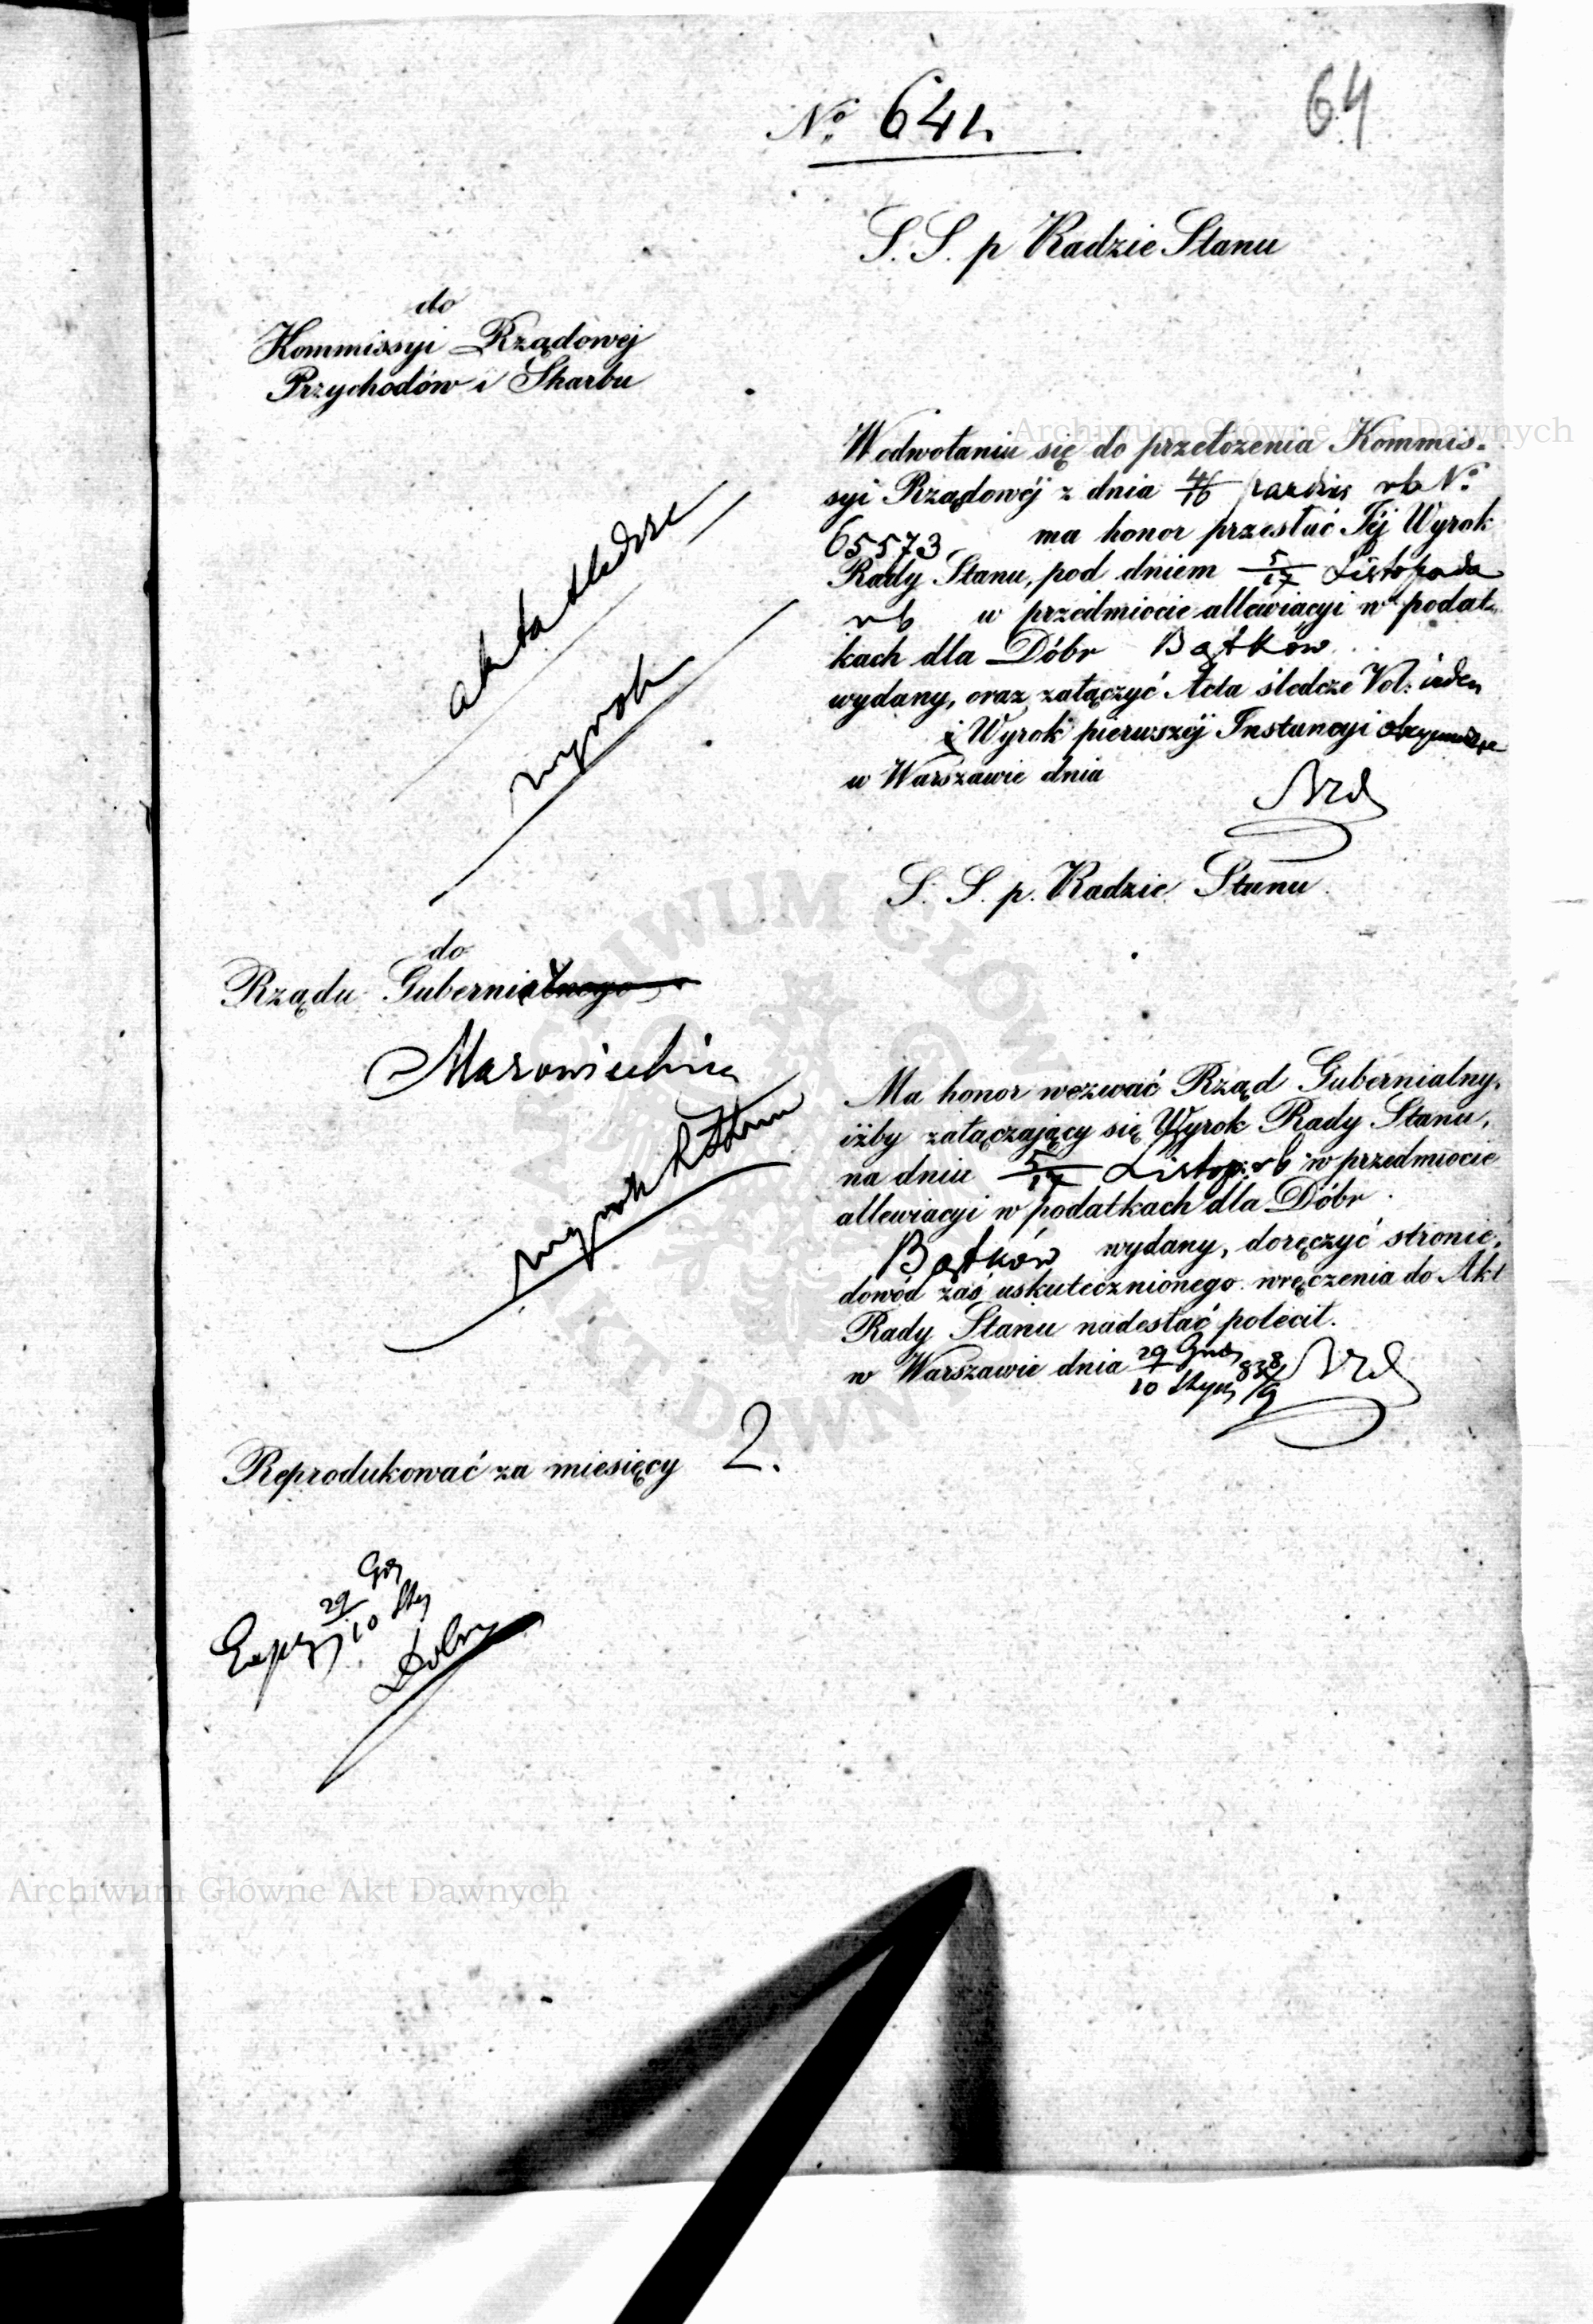 64
No 641
S. S. p Radzie Stanu
do
Kommissyi Rządowej
Przychodów i Skarbu
W odwołaniu się do przełożenia Kommis-
syi Rządowéj z dnia 4/16 rb No
65573 ma honor przesłać Jéj Wyrok
Rady Stanu, pod dniem 5/17 Listopada
rb w przedmiocie allewiacyi w podat-
kach dla Dóbr Bątków
wydany, oraz załączyć Acta śledcze Vol: jeden
i Wyrok pierwszéj Instancyi
w Warszawie dnia
akta śledcze
wyrok
S. S. p. Radzie Stanu
do
Rządu Gubernialnego
Mazowieckiego
wyrok R Stanu
Ma honor wezwać Rząd Gubernialny,
iżby załączający się Wyrok Rady Stanu,
na dniu 5/17 Listop: rb w przedmiocie
allewiacyi w podatkach dla Dóbr
Bątków wydany, doręczyć stronie,
dowód zaś uskutecznionego wręczenia do Akt
Rady Stanu nadesłać polecił.
w Warszawie dnia 29 Grud 838/9
10 Stycz
Reprodukować za miesięcy 2.
29 Gr
10 Sty
Archiwum Główne Akt Dawnych
Archiwum Główne Akt Dawnych
ARCHIWUM GŁÓWNE AKT DAWNYCH